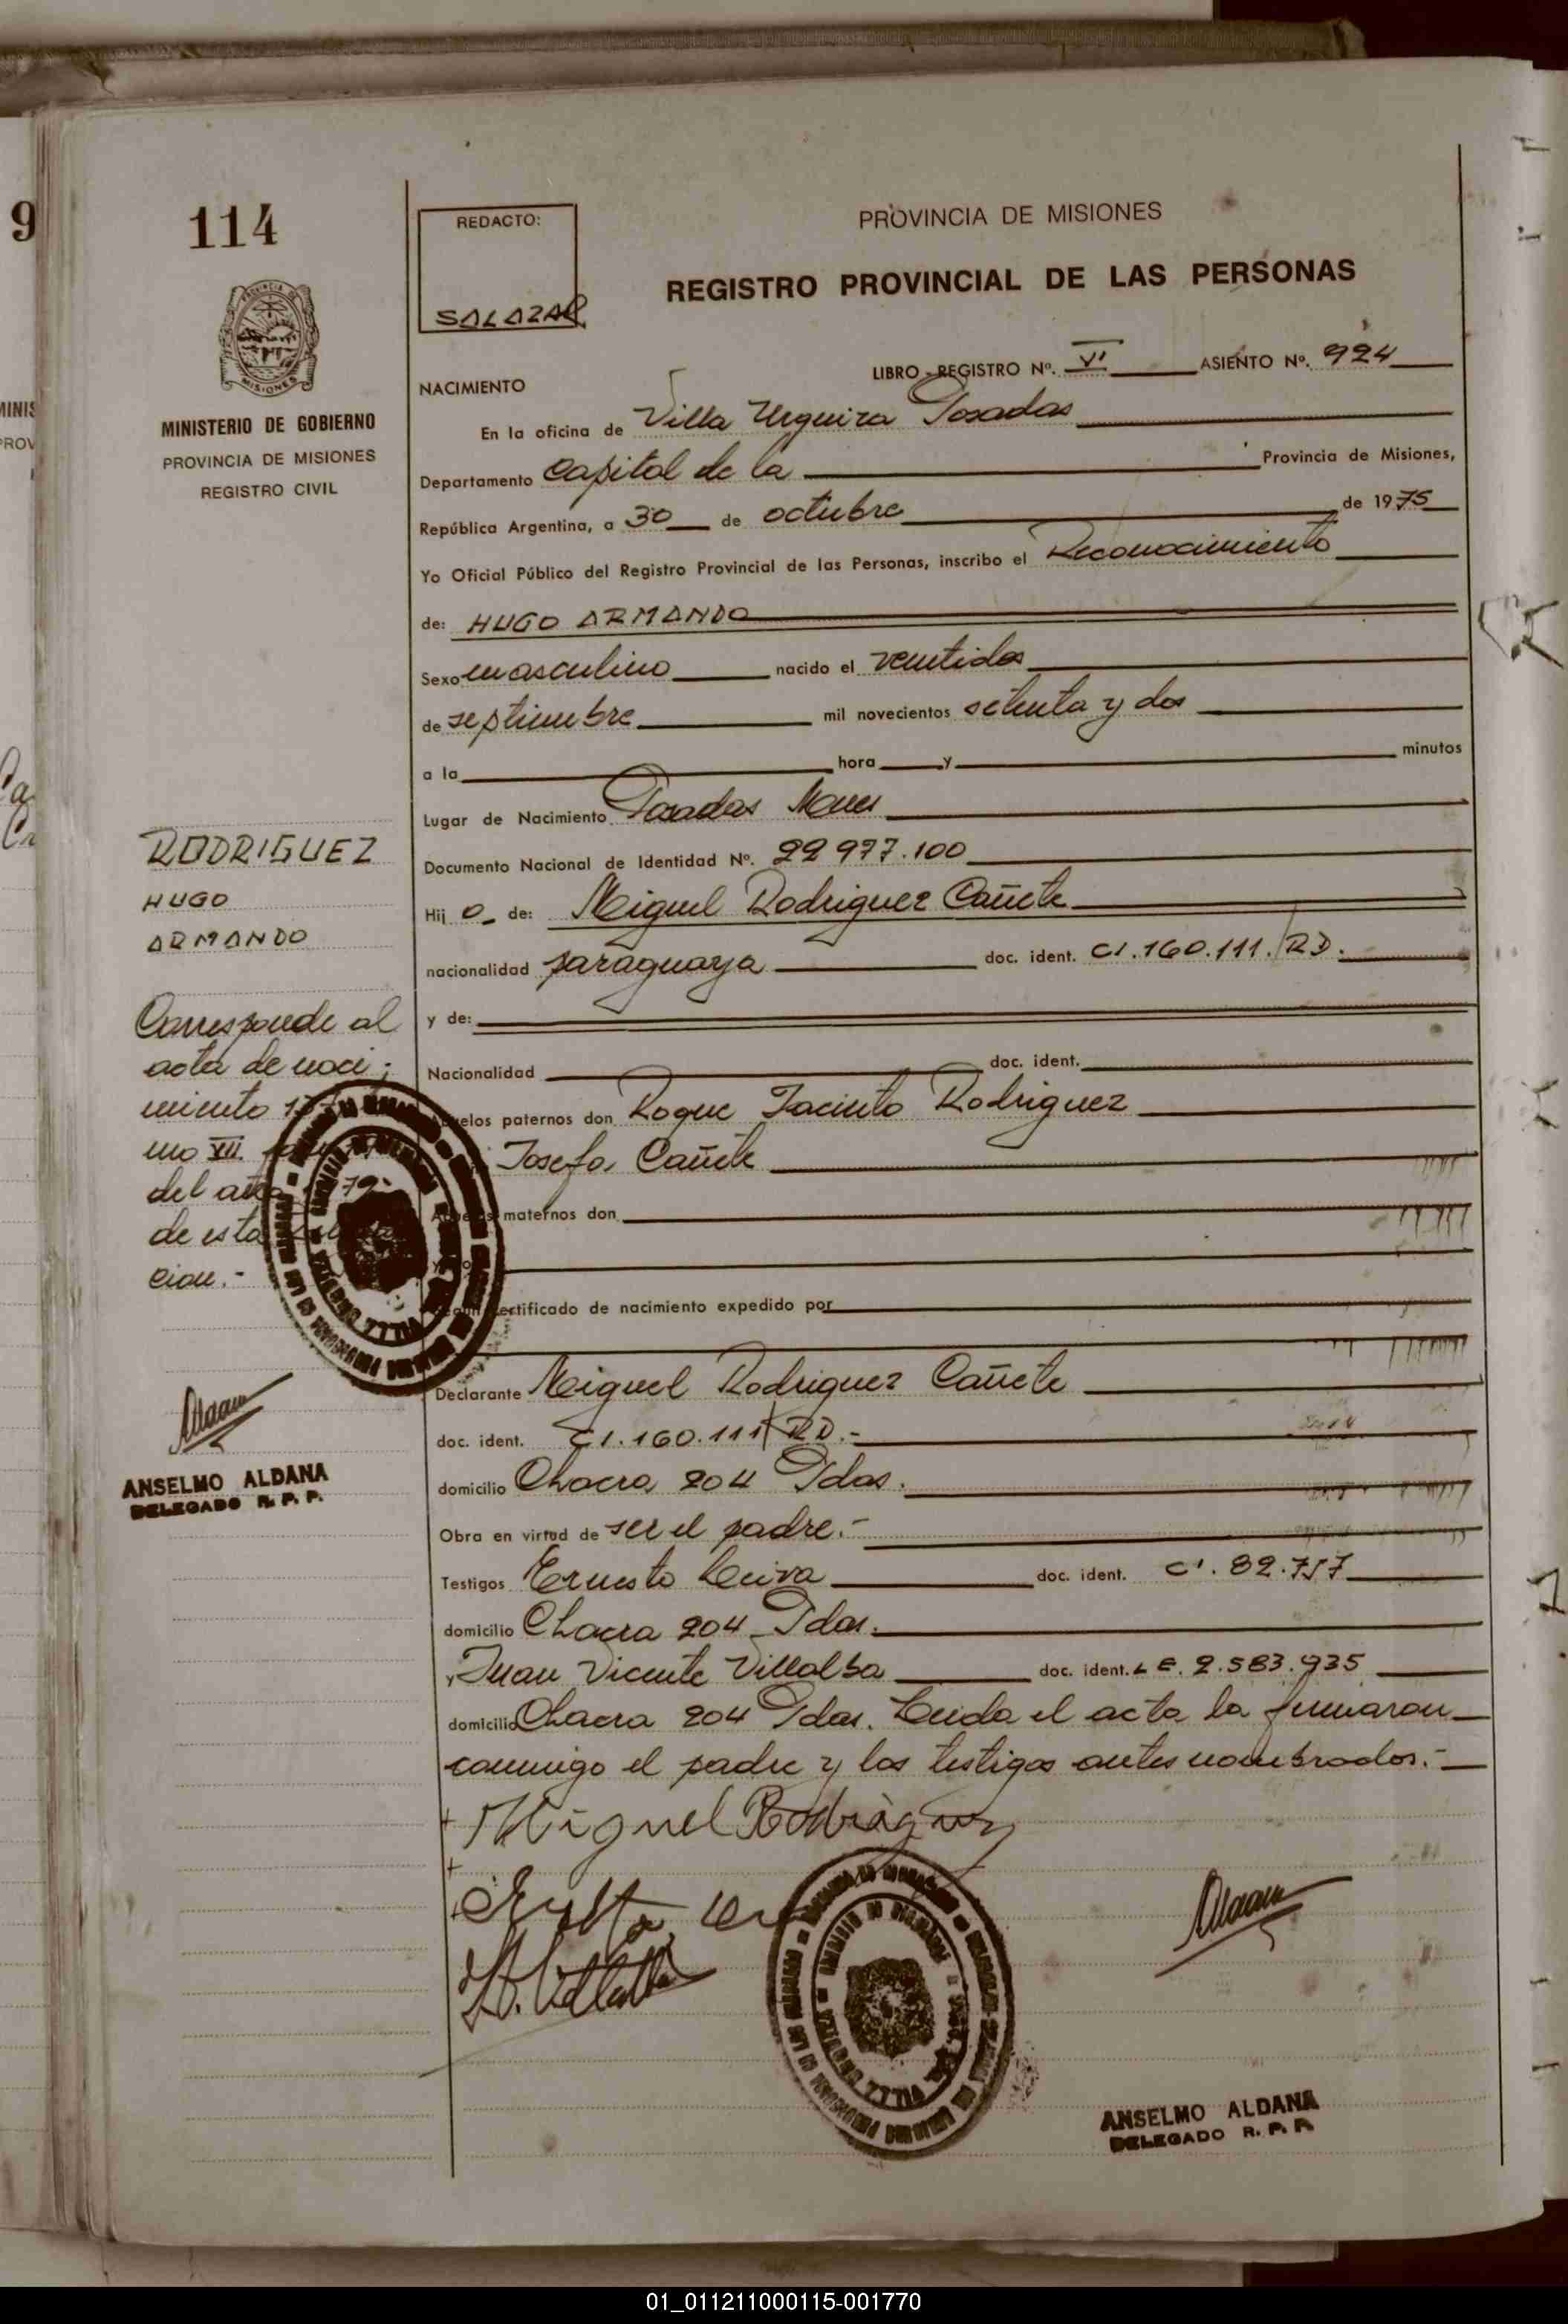 9
114
REDACTO:
SALAZAR
PROVINCIA DE MISIONES
REGISTRO PROVINCIAL DE LAS PERSONAS
MINISTERIO DE GOBIERNO
PROVINCIA DE MISIONES
REGISTRO CIVIL
NACIMIENTO
LIBRO - REGISTRO Nº. VI ASIENTO Nº. 924
En la oficina de Villa Urquiza Posadas
Departamento Capital de la Provincia de Misiones,
República Argentina, a 30 de octubre de 1975
Yo Oficial Público del Registro Provincial de las Personas, inscribo el Reconocimiento
de: HUGO ARMANDO
Sexo masculino nacido el veintidos
de septiembre mil novecientos setenta y dos
a la hora y minutos
Lugar de Nacimiento Posadas Mnes
Documento Nacional de Identidad Nº. 22 977.100
Hij o de: Miguel Rodriguez Cañete
nacionalidad paraguaya doc. ident. CI.160.111. RD.
y de:
Nacionalidad doc. ident.
paternos don Roque Jacinto Rodriguez
Josefa Cañete
maternos don
certificado de nacimiento expedido por
Declarante Miguel Rodriguez Cañete
doc. ident. CI.160.111 RD.-
domicilio Chacra 204 Pdas.
Obra en virtud de ser el padre.-
Testigos Ernesto Leiva doc. ident. CI. 82.757
domicilio Chacra 204 Pdas.
y Juan Vicente Villalba doc. ident. LE. 2.583.935
domicilio Chacra 204 Pdas. Leida el acta la firmaron
conmigo el padre y los testigos antes nombrados.-
Miguel Rodriguez
ANSELMO ALDANA
DELEGADO R. P. P.
RODRIGUEZ
HUGO
ARMANDO
Corresponde al
acta de naci
miento
mo VII
del año
de esta
cion.-
ANSELMO ALDANA
DELEGADO R. P. P.
01_011211000115-001770